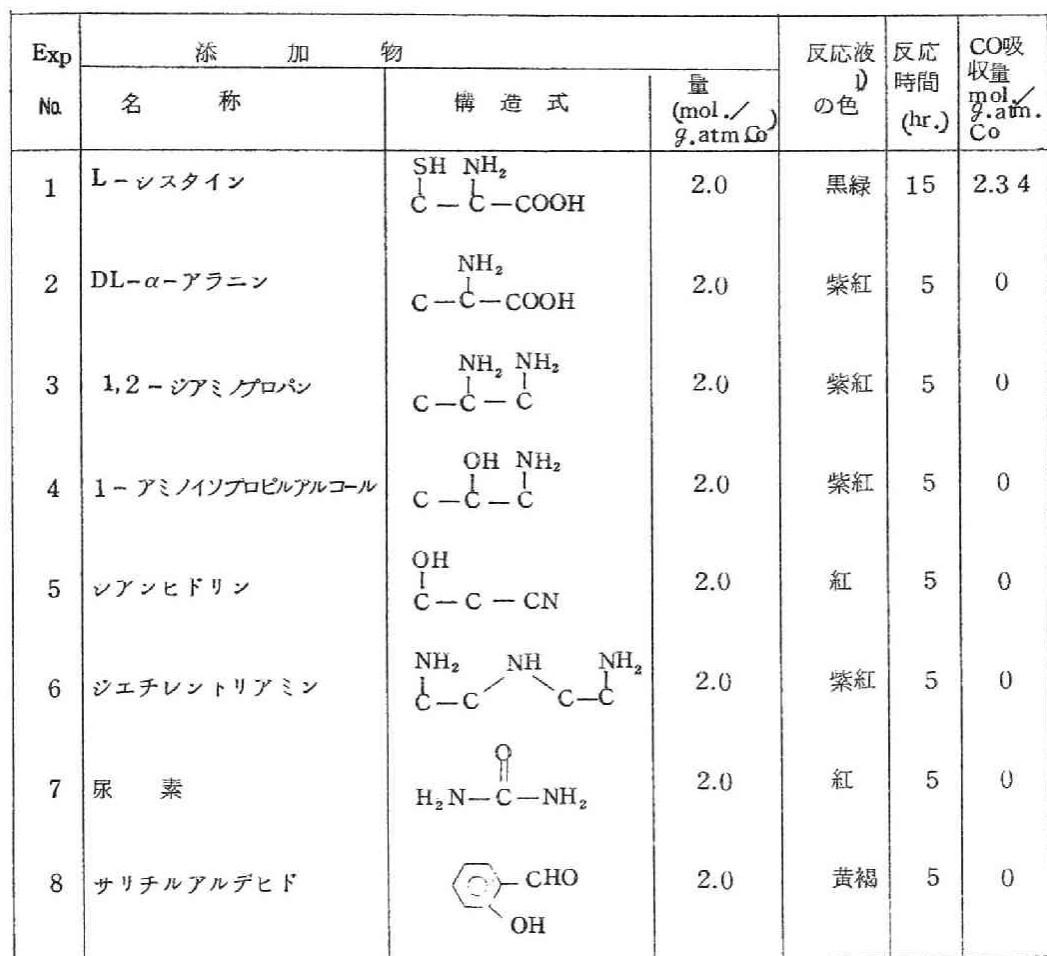 Exp No. 添加物 反応液の色 1) 反応時間 (hr.) CO吸収量 mol./g.atm.Co
名称 構造式 量 (mol./g.atm Co)
1 L-システイン SH NH₂ C-C-COOH 2.0 黒緑 15 2.34
2 DL-α-アラニン NH₂ C-C-COOH 2.0 紫紅 5 0
3 1,2-ジアミノプロパン NH₂ NH₂ C-C-C 2.0 紫紅 5 0
4 1-アミノイソプロピルアルコール OH NH₂ C-C-C 2.0 紫紅 5 0
5 シアンヒドリン OH C-C-CN 2.0 紅 5 0
6 ジエチレントリアミン NH₂ NH NH₂ C-C C-C 2.0 紫紅 5 0
7 尿素 O H₂N-C-NH₂ 2.0 紅 5 0
8 サリチルアルデヒド CHO OH 2.0 黄褐 5 0